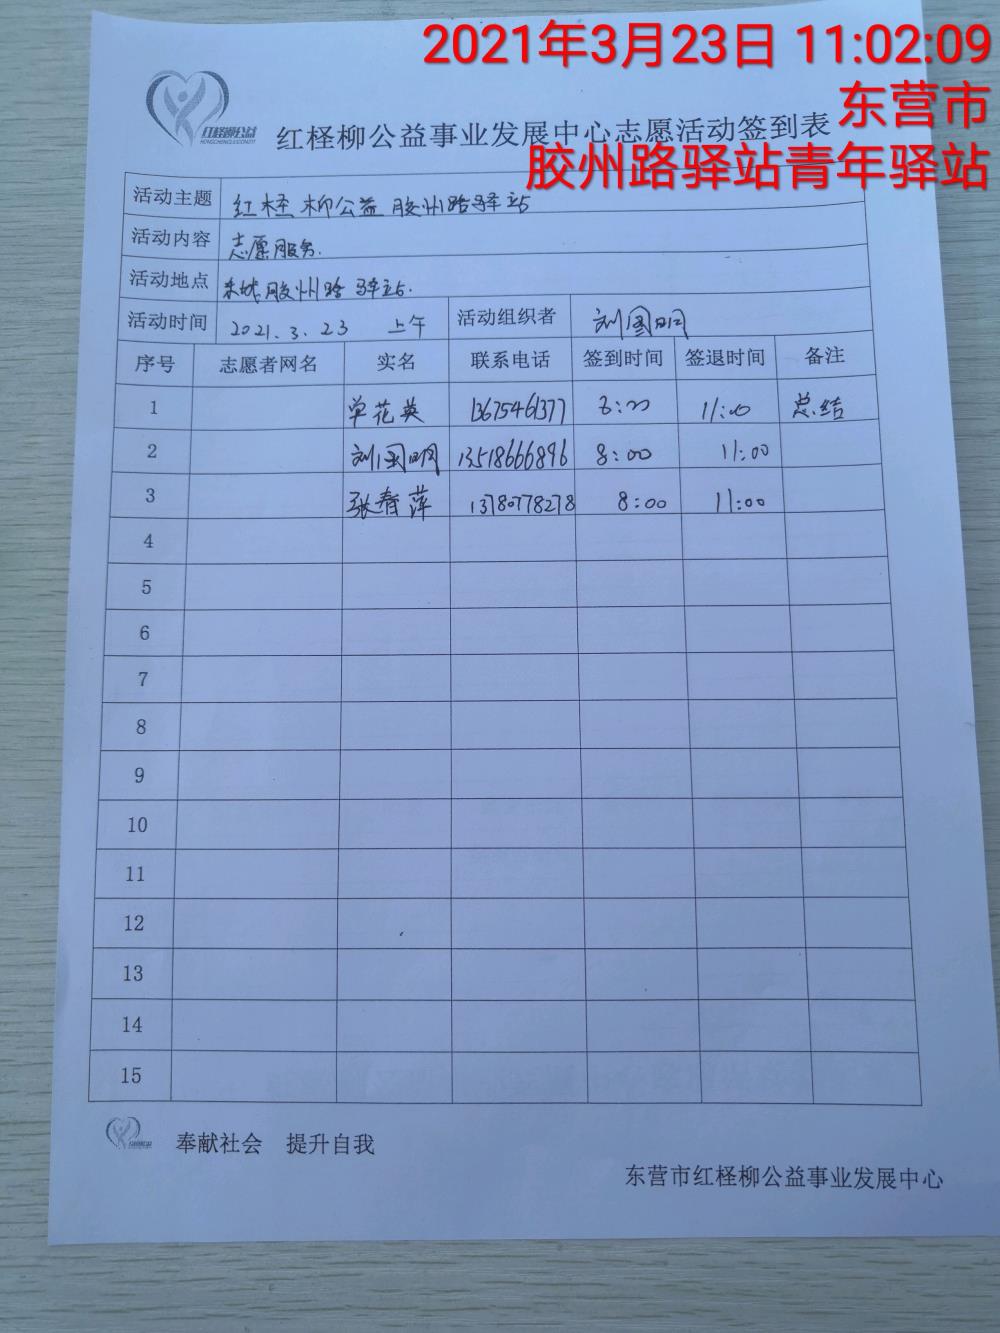 2021年3月23日 11:02:09
东营市
胶州路驿站青年驿站
红柽柳公益
红柽柳公益事业发展中心志愿活动签到表
活动主题 红柽柳公益胶州路驿站
活动内容 志愿服务.
活动地点 东城胶州路驿站.
活动时间 2021.3.23 上午 活动组织者 刘国明
序号 志愿者网名 实名 联系电话 签到时间 签退时间 备注
1 单花英 13675461377 8:00 11:00 总结
2 刘国明 13518666896 8:00 11:00
3 张春萍 13780778278 8:00 11:00
4
5
6
7
8
9
10
11
12
13
14
15
奉献社会 提升自我
东营市红柽柳公益事业发展中心